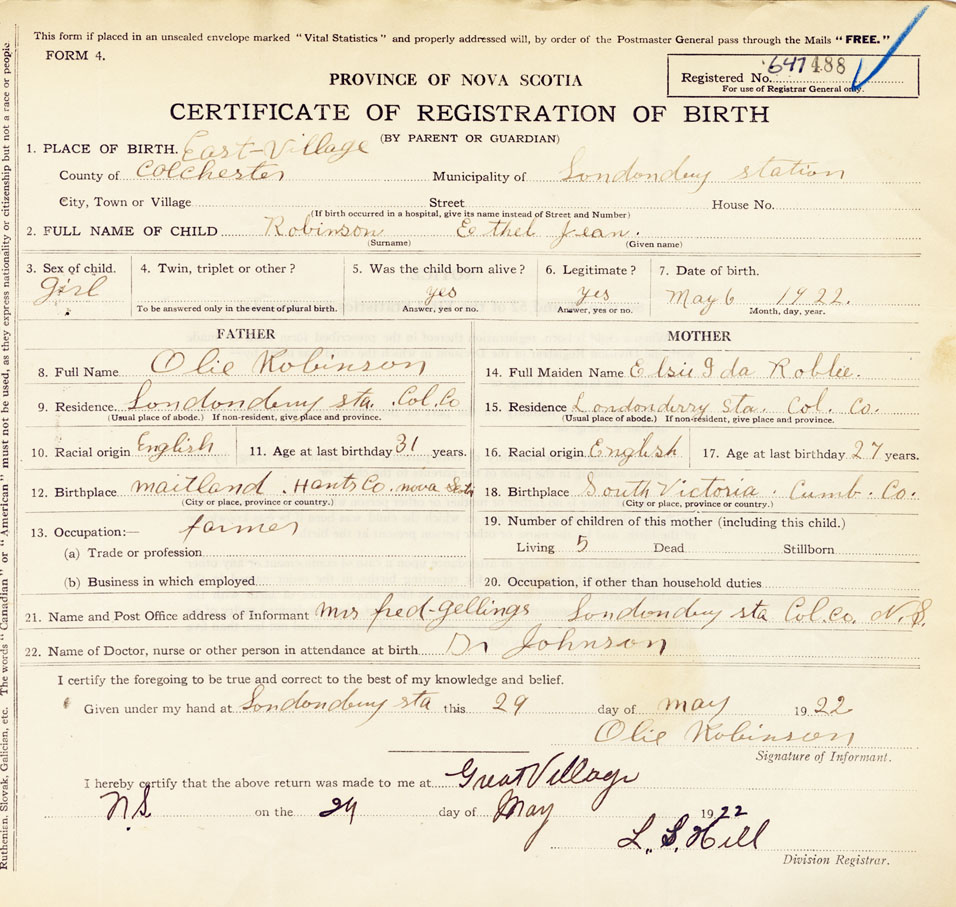 This form if placed in an unsealed envelope marked "Vital Statistics" and properly addressed will, by order of the Postmaster General pass through the Mails "FREE."
FORM 4.
PROVINCE OF NOVA SCOTIA
Registered No. 647488
For use of Registrar General only.
CERTIFICATE OF REGISTRATION OF BIRTH
(BY PARENT OR GUARDIAN)
1. PLACE OF BIRTH. East-Village
County of Colchester Municipality of Londondery station
City, Town or Village Street House No.
(If birth occurred in a hospital, give its name instead of Street and Number)
2. FULL NAME OF CHILD Robinson Eethel Jean.
(Surname) (Given name)
3. Sex of child. 4. Twin, triplet or other? 5. Was the child born alive? 6. Legitimate? 7. Date of birth.
girl yes yes May 6 1922.
To be answered only in the event of plural birth. Answer, yes or no. Answer, yes or no. Month, day, year.
FATHER MOTHER
8. Full Name Olie Robinson 14. Full Maiden Name Elsie Ida Roblie.
9. Residence Londondery sta. Col. Co 15. Residence Londonderry Sta. Col. Co.
(Usual place of abode.) If non-resident, give place and province. (Usual place of abode.) If non-resident, give place and province.
10. Racial origin English 11. Age at last birthday 31 years. 16. Racial origin English 17. Age at last birthday 27 years.
12. Birthplace maitland. Hants Co. nova Scotia 18. Birthplace South Victoria. Cumb. Co.
(City or place, province or country.) (City or place, province or country.)
13. Occupation:— farmer 19. Number of children of this mother (including this child.)
(a) Trade or profession Living 5 Dead Stillborn
(b) Business in which employed 20. Occupation, if other than household duties
21. Name and Post Office address of Informant Mrs fred-Gellings Londondery sta Col.co. N.S.
22. Name of Doctor, nurse or other person in attendance at birth Dr Johnson
I certify the foregoing to be true and correct to the best of my knowledge and belief.
Given under my hand at Londondery sta this 29 day of may 1922
Olie Robinson
Signature of Informant.
I hereby certify that the above return was made to me at Great Village
N.S. on the 29 day of May 1922
L. S. Hill
Division Registrar.
Ruthenian, Slovak, Galician, etc. The words "Canadian" or "American" must not be used, as they express nationality or citizenship but not a race or people